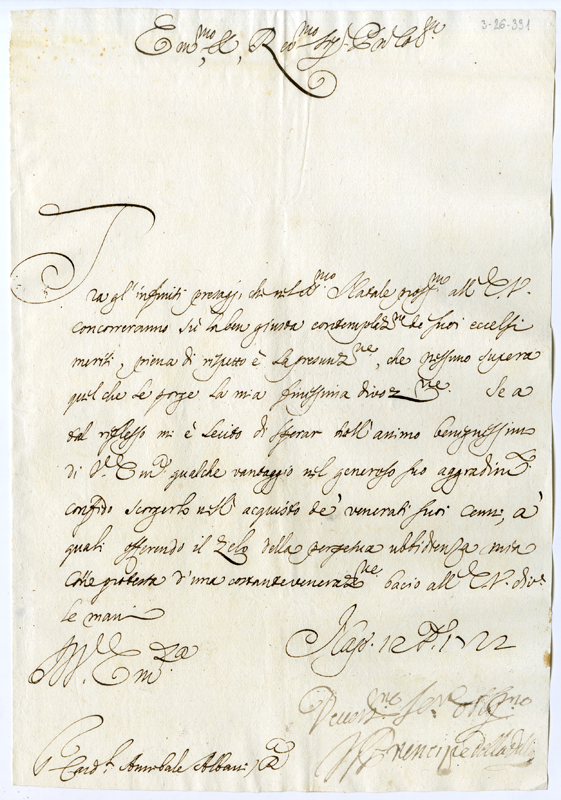 3-26-331
Em.mo, & Rev.mo Sig.
Tra gl'infiniti presagj, che nel S.mo Natale pross.mo all'E.V.
concorreranno sù la ben giusta de suoi eccelsi
meriti, piena di rispetto è la , che nessuno supera
quel che le porge la mia finissima divoz.ne. Se a
tal riflesso mi è lecito di sperar nell'animo benignissimo
di V.ra Em.za qualche vantaggio nel generoso suo aggradim.to
confido scorgerlo nell'acquisto de' venerati suoi cenni, a'
quali offerendo il zelo della perpetua ubbidienza mia
colla protesta d'una costante veneraz.ne bacio all'E.V. div.te
le mani
Nap. 12 1722
V. Em.za
Se.re Oblig.mo
Prencipe della
Card.l Annibale Albani